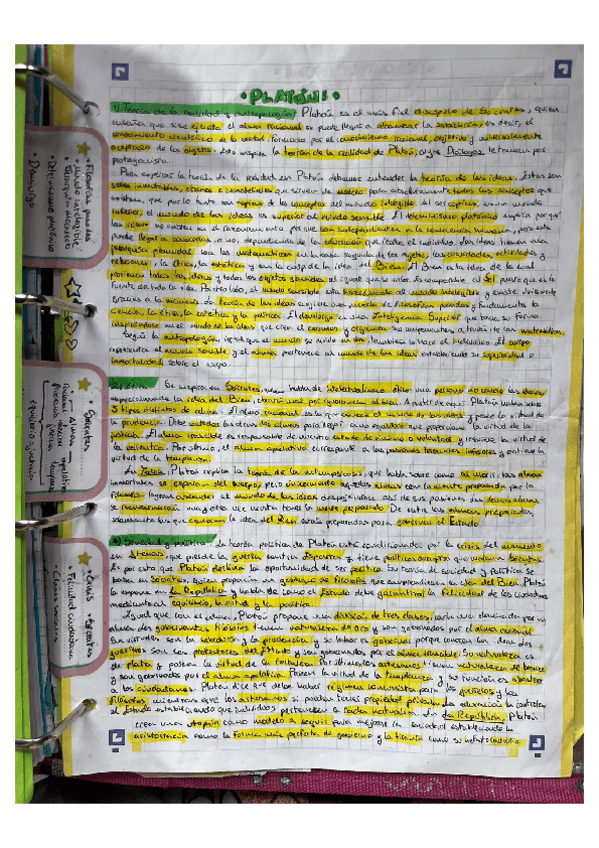 • PLATÓN! •
1) Teoría de la realidad y antropología: Platón es el más fiel discípulo de Sócrates, quien
enseña que si se ejercita el alma racional se puede llegar a alcanzar la sabiduría, es decir, el
conocimiento de la verdad, formado por el conocimiento racional, objetivo y universalmente
de los objetos. Esto inspira la teoría de la realidad de Platón, cuyos Diálogos le tienen por
protagonista.
Para explicar la teoría de la realidad en Platón debemos entender la teoría de las ideas. Estas son
seres inmutables, eternos e inmateriales que sirven de modelo para absolutamente todos los conceptos que
existen, que por lo tanto son copias de los conceptos del mundo inteligible. Al ser copias, es un mundo
inferior, el mundo de las ideas es superior al mundo sensible. El determinismo platónico explica por qué
las ideas no existen en el razonamiento porque son independientes de la conciencia humana, pero esta
puede llegar a conocerlas o no, dependiendo de la educación que reciba el individuo. Las ideas tienen una
jerarquía piramidal: son las matemáticas en la base, seguida de los objetos, las cualidades, actividades y
relaciones, la ética, la estética y en la cúspide la idea del Bien. El Bien es la idea de la cual
todas las ideas y todos los objetos sensibles al igual que se ve el Sol puesto que es la
fuente de toda la idea. Por otro lado, el mundo sensible está al mundo inteligible y existe
gracias a la teoría de las ideas surgió una y fundamenta la
ciencia, la ética, la estética y la política. El demiurgo es una Inteligencia Superior que
en el mundo de las ideas que crea el cosmos y organiza sus componentes a través de las matemáticas.
Según la antropología, igual que el mundo se divide en dos, también lo hace el individuo. El cuerpo
representa el mundo sensible y el alma pertenece al mundo de las ideas estableciendo su superioridad e
inmortalidad sobre el cuerpo.
2) Ética: Se inspira en Sócrates, que habla de intelectualismo ético: una persona no conoce las ideas
especialmente la idea del Bien, obrará mal por ignorancia al bien. A partir de aquí Platón habla sobre
3 tipos distintos de alma. El alma racional es la que conoce el mundo de las ideas y posee la virtud de
la prudencia. Debe las almas para llegar a un equilibrio que proporcione la virtud de la
justicia. El alma irascible es responsable de nuestro estado de ánimo o voluntad, y requiere la virtud de
la valentía. Por último, el alma apetitiva corresponde a las pasiones terrenales inferiores y contiene la
virtud de la templanza.
En Fedón, Platón explica la teoría de la metempsicosis, que habla sobre cómo al morir, las almas
inmortales se separan del cuerpo, pero únicamente aquellas almas con la mente preparada por la
filosofía logran ascender al mundo de las ideas despidiéndose así de sus pasiones. Las demás almas
se reencarnan una y otra vez hasta tener la mente preparada. De entre las almas preparadas
solamente las que conocen la idea del Bien están preparadas para gobernar el Estado.
3) Sociedad y política: La teoría política de Platón está condicionada por la crisis del momento
en Atenas, que pierde la guerra contra Esparta, y tiene políticos corruptos que mataron a Sócrates.
Es por esto que Platón declina la oportunidad de ser político. Su teoría de sociedad y política se
basa en Sócrates, quien proponía un gobierno de filósofos que comprendiesen la idea del Bien. Platón
la expone en La República y habla de cómo el Estado debe garantizar la felicidad de los ciudadanos
mediante el equilibrio, la virtud y la política.
Igual que con el alma, Platón propone una división de tres clases, cada una dominada por un
alma. Los gobernantes filósofos tienen una naturaleza de oro y son gobernados por el alma racional.
Sus virtudes son la sabiduría y la prudencia y su labor es gobernar porque conocen las ideas. Los
guerreros son los protectores del Estado y son gobernados por el alma irascible. Su naturaleza es
de plata y poseen la virtud de la fortaleza. Por último, los artesanos tienen naturaleza de bronce
y son gobernados por el alma apetitiva. Poseen la virtud de la templanza y su función es abastecer
a los ciudadanos. Platón dice que debe haber régimen comunista para los guerreros y los
filósofos, mientras que los artesanos sí pueden tener propiedad privada. La educación la controla
el Estado estableciendo qué individuos pertenecen a cada naturaleza. En La República, Platón
crea una utopía como modelo a seguir para mejorar la sociedad estableciendo la
aristocracia como la forma más perfecta de gobierno y la tiranía como su
• Filosofía
• Mundo inteligible
• Determinismo platónico
• Demiurgo
• Sócrates
• Almas
racional irascible apetitiva
prudencia templanza
equilibrio = justicia
• Crisis
• Felicidad ciudadana
• Clases sociales